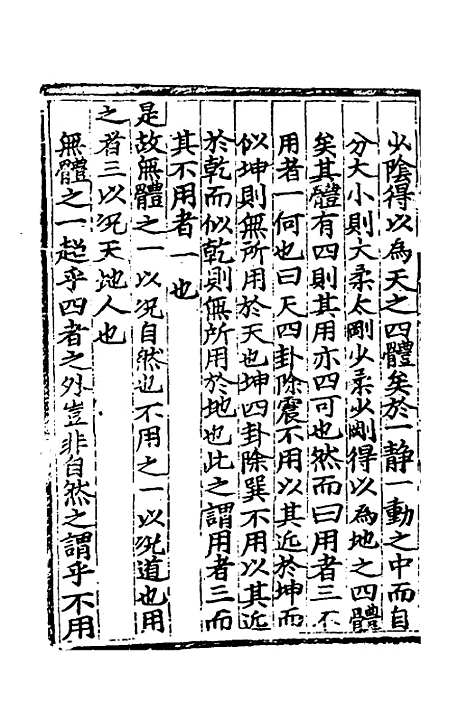 少陰得以為天之四體矣於一靜一動之中而自
分大小則大柔太剛少柔少剛得以為地之四體
矣其體有四則其用亦四可也然而曰用者三不
用者一何也曰天四卦除震不用以其近於坤而
似坤則無所用於天也坤四卦除巽不用以其近
於乾而似乾則無所用於地也此之謂用者三而
其不用者一也
是故無體之一以况自然也不用之一以况道也用
之者三以况天地人也
無體之一超乎四者之外豈非自然之謂乎不用